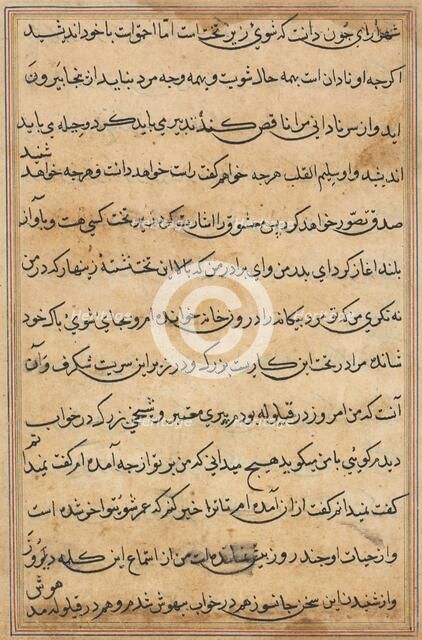 شهرارای چون دانست که شوی زیر تخت است اما احمق است با خود اندیشید
اگرچه او نادان است بهمه حال شویست و بهمه وجه مرد بناید از نجا بیرون
اید و از سر نادانی مرا ناقص کند تدبیری باید کرد و حیله می باید
اندیشید و او سلیم القلب هرچه خواهم گفت راست خواهد دانست و هرچه خواهد شنید
صدق تصور خواهد کرد پس معشوق را اشارت کرد زیر تخت کسی هست و باواز
بلند اغاز کرد ای پدر من و ای برادر من که بالا این تخت نشسته زینهار که در من
نه نکری من که ترا مرد بیگانه را در روز خانه خوانده ام و بجای شوی پاک خود
شانده مرا در تحت این کار سریست بزرگ و در زیر این سریت شگرف و آن
آنست که من امروز در قیلوله بودم پیری معتبر و شیخی بزرگ در خواب
دیدم گویی با من میگوید هیچ میدانی که من بر تو از چه آمده ام گفتم نمیدانم
گفت نمیدانم گفت از ان آمده ام تا ترا خبر کنم که عمر شوی تو اخر شده است
و از حیات او چند روز بیش نمانده است من از استماع این کلمه دلروز
و از شنیدن این سخن جانسوز هم در خواب بیهوش شدم و هم در قیلوله مد هوش
Heritage